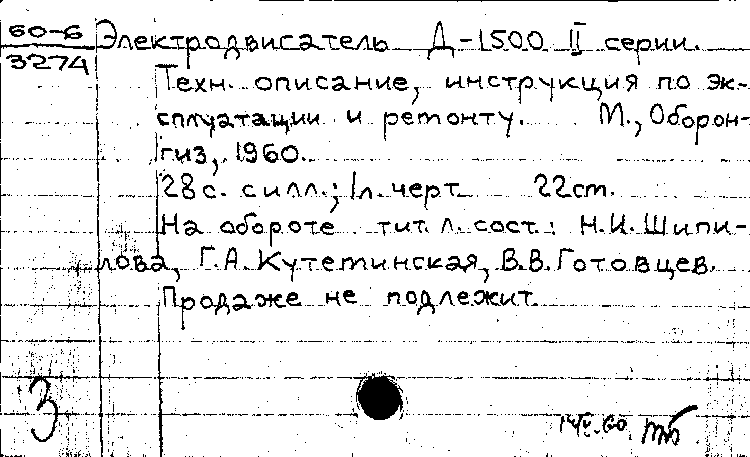 60-6
3274
Электродвигатель Д-1500 II серии.
Техн. описание, инструкция по эк-
сплуатации и ремонту. М., Оборон-
гиз, 1960.
28 с. с илл.; 1 л. черт. 22 см.
На обороте тит. л. сост.: Н.И. Шипи-
лова, Г.А. Кутетинская, В.В. Готовцев.
Продаже не подлежит.
3